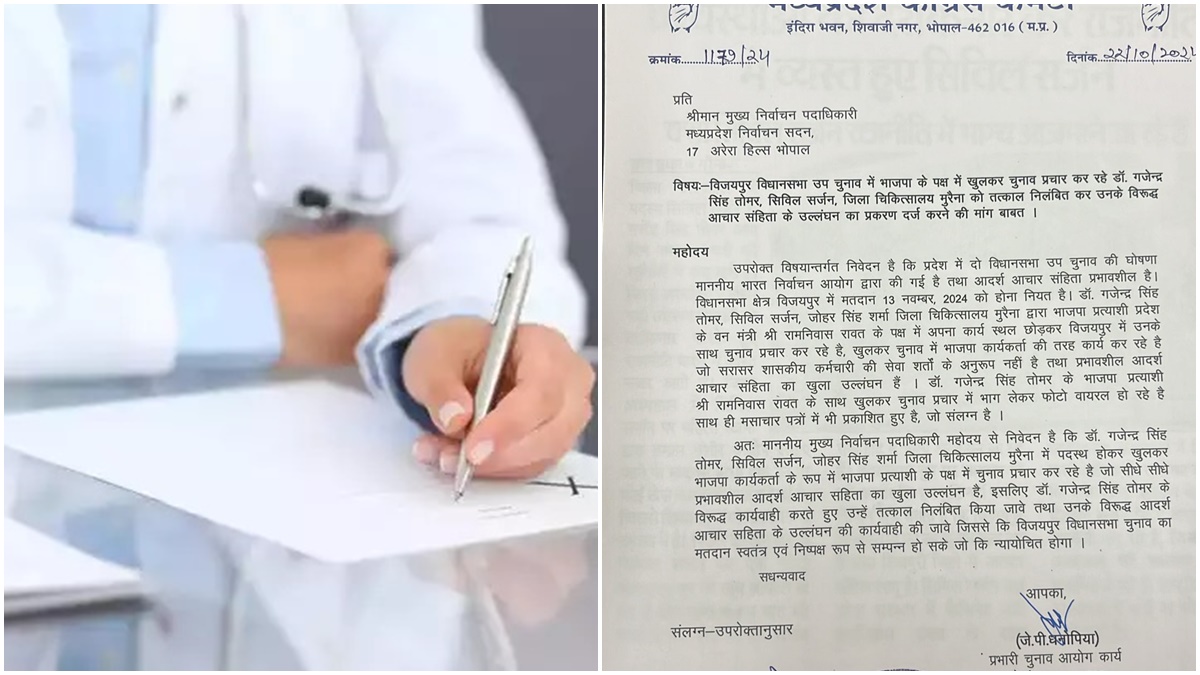 मध्यप्रदेश कांग्रेस कमेटी
इंदिरा भवन, शिवाजी नगर, भोपाल-462 016 ( म.प्र. )
क्रमांक....1179/24
दिनांक..22/10/2024
प्रति
श्रीमान मुख्य निर्वाचन पदाधिकारी
मध्यप्रदेश निर्वाचन सदन,
17 अरेरा हिल्स भोपाल
विषयः–विजयपुर विधानसभा उप चुनाव में भाजपा के पक्ष में खुलकर चुनाव प्रचार कर रहे डॉ. गजेन्द्र
सिंह तोमर, सिविल सर्जन, जिला चिकित्सालय मुरैना को तत्काल निलंबित कर उनके विरूद्ध
आचार संहिता के उल्लंघन का प्रकरण दर्ज करने की मांग बाबत ।
महोदय
उपरोक्त विषयान्तर्गत निवेदन है कि प्रदेश में दो विधानसभा उप चुनाव की घोषणा
माननीय भारत निर्वाचन आयोग द्वारा की गई है तथा आदर्श आचार संहिता प्रभावशील है।
विधानसभा क्षेत्र विजयपुर में मतदान 13 नवम्बर, 2024 को होना नियत है। डॉ. गजेन्द्र सिंह
तोमर, सिविल सर्जन, जोहर सिंह शर्मा जिला चिकित्सालय मुरैना द्वारा भाजपा प्रत्याशी प्रदेश
के वन मंत्री श्री रामनिवास रावत के पक्ष में अपना कार्य स्थल छोड़कर विजयपुर में उनके
साथ चुनाव प्रचार कर रहे है, खुलकर चुनाव में भाजपा कार्यकर्ता की तरह कार्य कर रहे है
जो सरासर शासकीय कर्मचारी की सेवा शर्तो के अनुरूप नहीं है तथा प्रभावशील आदर्श
आचार संहिता का खुला उल्लंघन हैं । डॉ. गजेन्द्र सिंह तोमर के भाजपा प्रत्याशी
श्री रामनिवास रावत के साथ खुलकर चुनाव प्रचार में भाग लेकर फोटो वायरल हो रहे है
साथ ही मसाचार पत्रों में भी प्रकाशित हुए है, जो संलग्न है ।
अतः माननीय मुख्य निर्वाचन पदाधिकारी महोदय से निवेदन है कि डॉ. गजेन्द्र सिंह
तोमर, सिविल सर्जन, जोहर सिंह शर्मा जिला चिकित्सालय मुरैना में पदस्थ होकर खुलकर
भाजपा कार्यकर्ता के रूप में भाजपा प्रत्याशी के पक्ष में चुनाव प्रचार कर रहे है जो सीधे सीधे
प्रभावशील आदर्श आचार सहिता का खुला उल्लंघन है, इसलिए डॉ. गजेन्द्र सिंह तोमर के
विरूद्ध कार्यवाही करते हुए उन्हें तत्काल निलंबित किया जावे तथा उनके विरूद्ध आदर्श
आचार सहिता के उल्लंघन की कार्यवाही की जावे जिससे कि विजयपुर विधानसभा चुनाव का
मतदान स्वतंत्र एवं निष्पक्ष रूप से सम्पन्न हो सके जो कि न्यायोचित होगा ।
सधन्यवाद
आपका,
संलग्न–उपरोक्तानुसार
(जे.पी.धनोपिया)
प्रभारी चुनाव आयोग कार्य